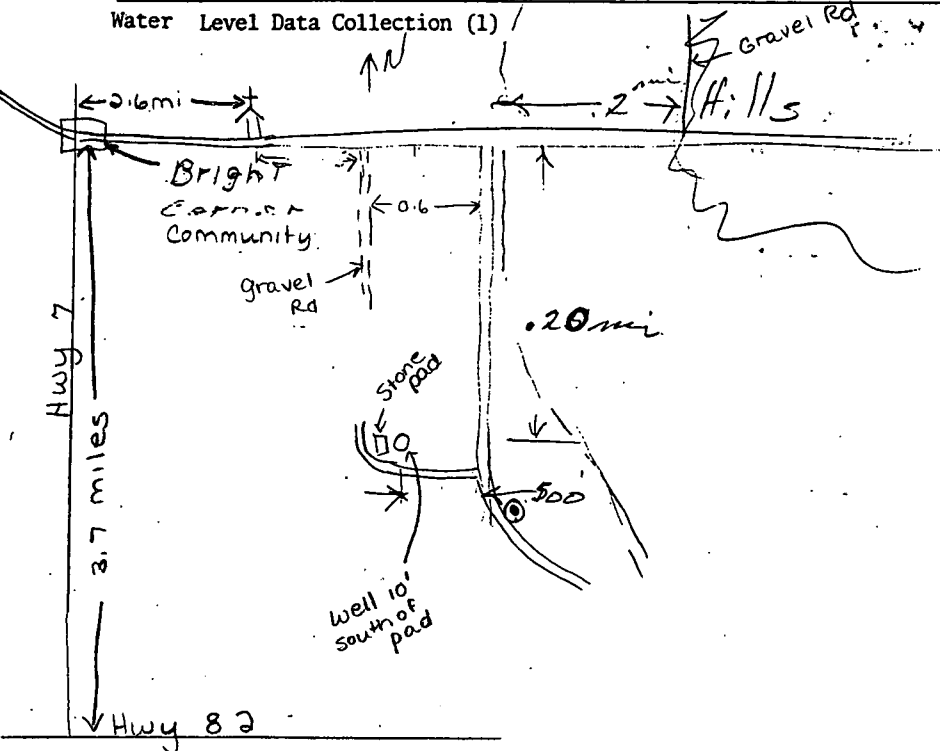 Water Level Data Collection (1)
N
Gravel Rd
2.6 mi
2 mi
Hills
Bright
Corner
Community
0.6
gravel
Rd
.20 mi
Hwy 7
3.7 miles
Stone
pad
500'
Well 10'
south of
pad
Hwy 82